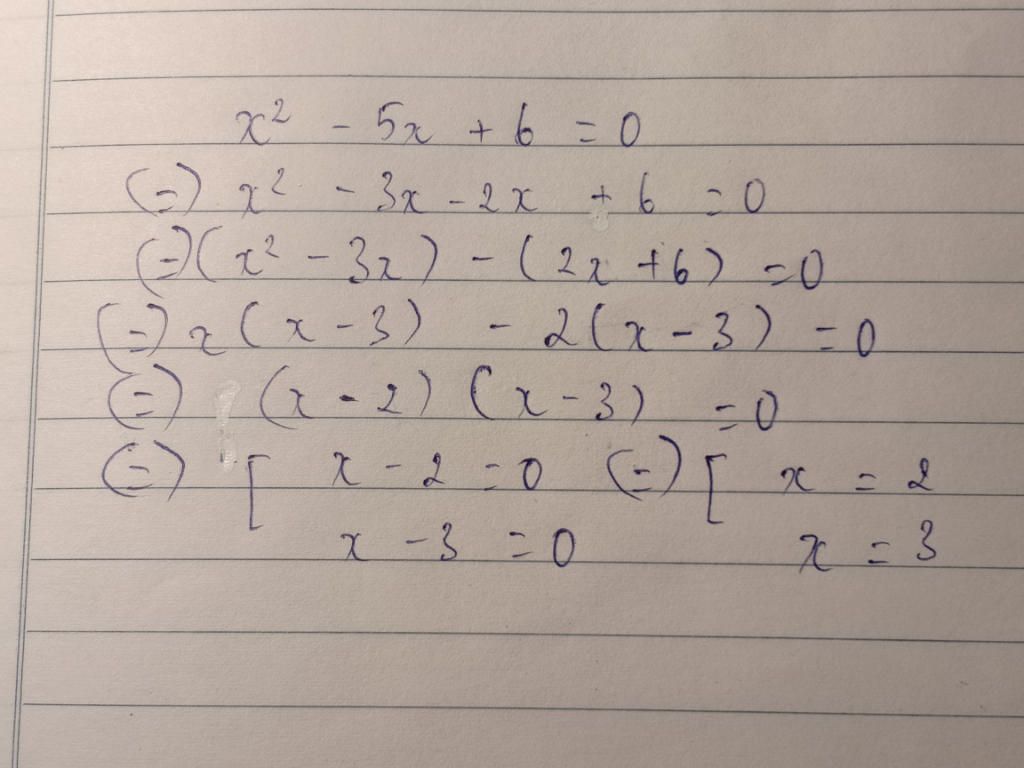 x² - 5x + 6 = 0
(=) x² - 3x - 2x + 6 = 0
(=) (x² - 3x) - (2x + 6) = 0
(=) x (x - 3) - 2 (x - 3) = 0
(=) (x - 2) (x - 3) = 0
(=) [ x - 2 = 0 (=) [ x = 2
x - 3 = 0 x = 3